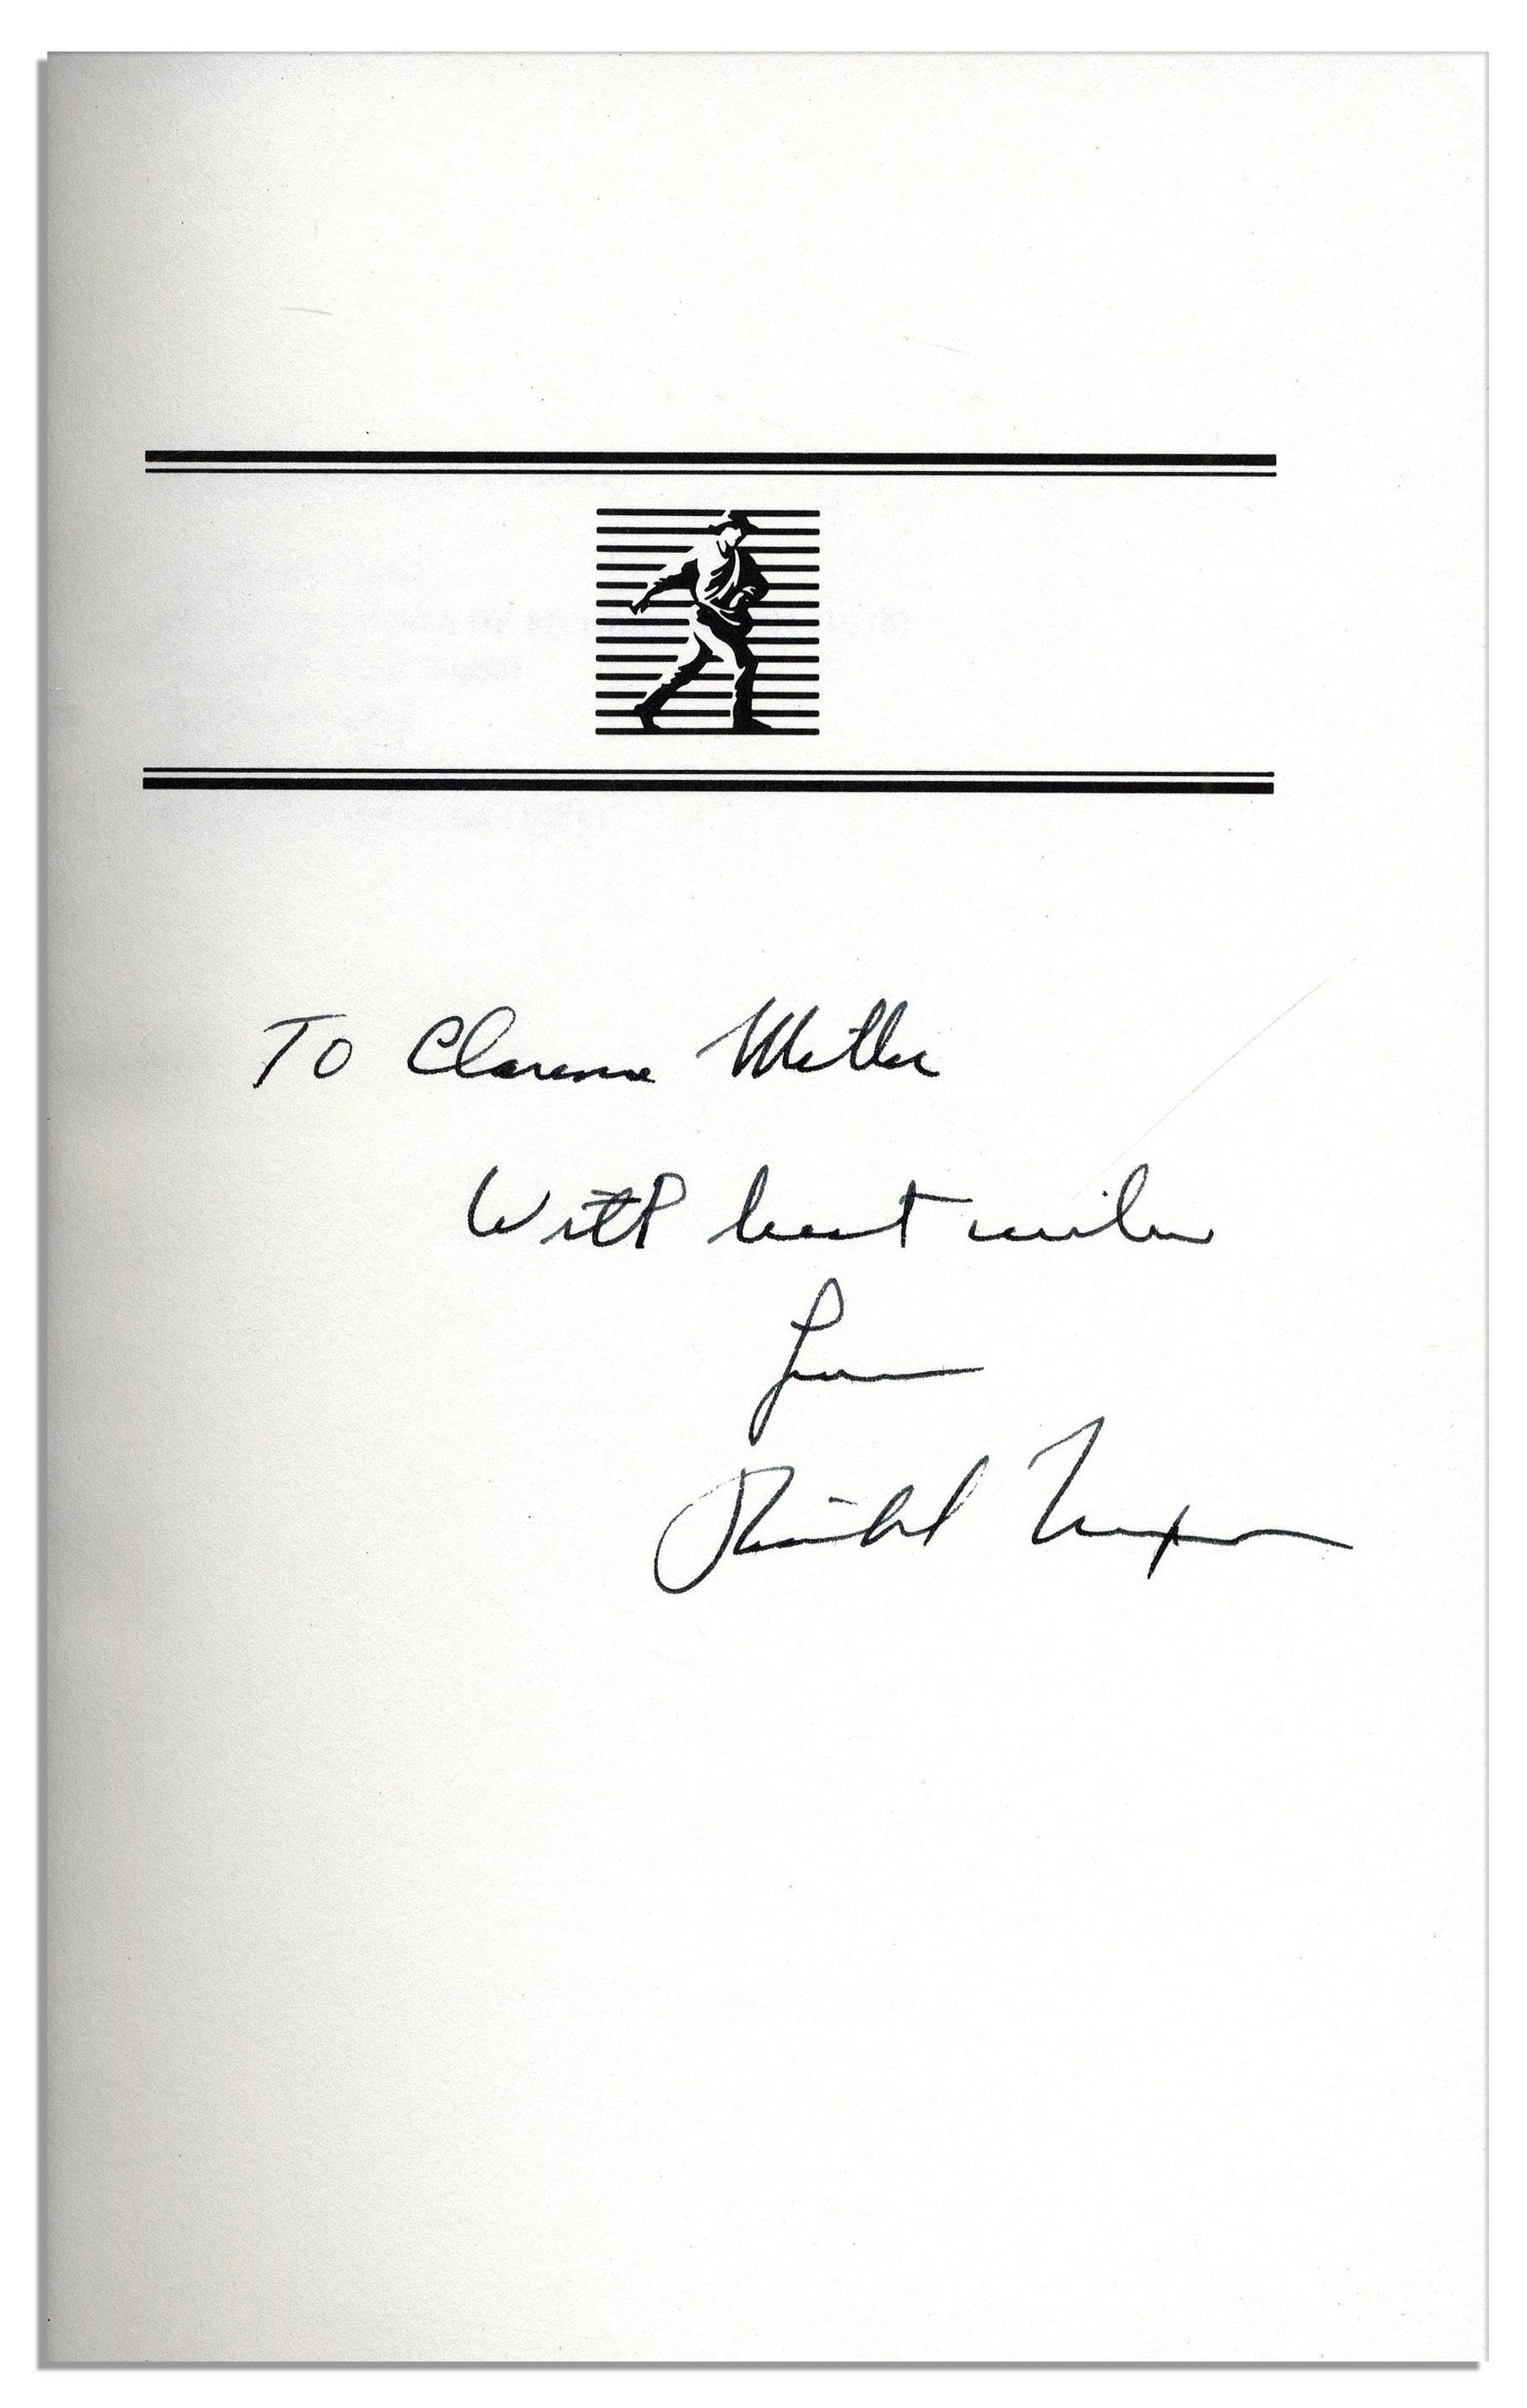 To Clarence Miller
With best wishes
from
Richard Nixon